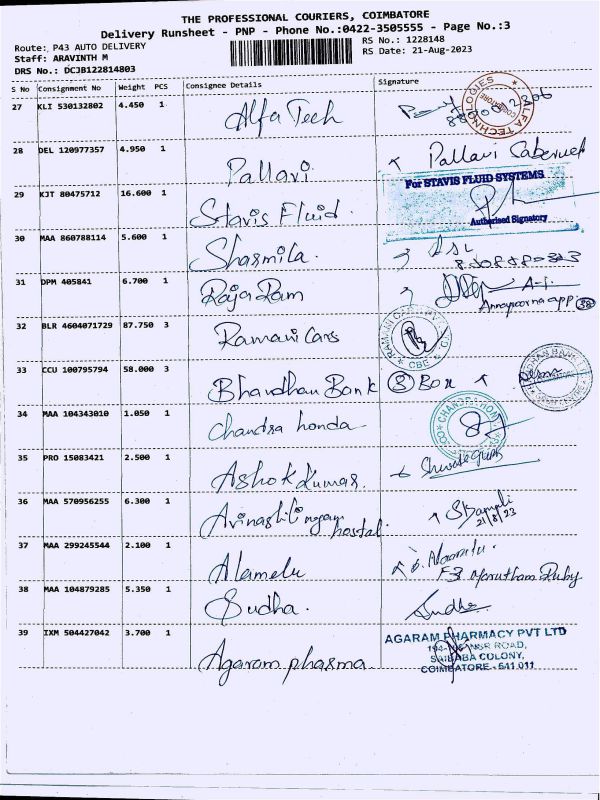 THE PROFESSIONAL COURIERS, COIMBATORE
Delivery Runsheet - PNP - Phone No.:0422-3505555 - Page No.:3
Route: P43 AUTO DELIVERY
RS No.: 1228148
Staff: ARAVINTH M
RS Date: 21-Aug-2023
DRS No.: DCJB122814803
S No Consignment No Weight PCS Consignee Details Signature
27 KLI 530132802 4.450 1 Alfa Tech
ALFA TECHNOLOGIES
COIMBATORE
28 DEL 120977357 4.950 1 Pallavi Pallavi
29 KJT 80475712 16.600 1 Stavis Fluid.
For STAVIS FLUID SYSTEMS
Authorised Signatory
30 MAA 860788114 5.600 1 Sharmila.
31 DPM 405841 6.700 1 Raja Ram
Annapoorna app
32 BLR 4604071729 87.750 3 Ramani Cars
RAMANI CARS
CBE
33 CCU 100795794 58.000 3 Bhandhan Bank ③ Box
34 MAA 104343010 1.050 1 Chandra honda
35 PRO 15083421 2.500 1 Ashok Kumar.
36 MAA 570956255 6.300 1 Avinashilingam
hostal.
21/8/23
37 MAA 299245544 2.100 1 Alamelu
F3 Marutham Ruby
38 MAA 104879285 5.350 1 Sudha. Sudha
39 IXM 504427042 3.700 1 Agaram pharma.
AGARAM PHARMACY PVT LTD
NSR ROAD,
SAIBABA COLONY,
COIMBATORE - 641 011